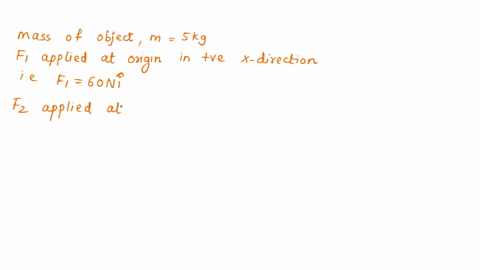 mass of object, m = 5kg
F1 applied at origin in +ve x-direction
i.e F1 = 60N î
F2 applied at